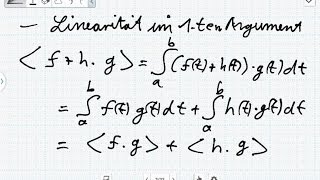 – Linearität im 1-ten Argument
< f + h . g > = ∫_a^b (f(t) + h(t)) · g(t) dt
= ∫_a^b f(t) g(t) dt + ∫_a^b h(t) · g(t) dt
= < f . g > + < h . g >